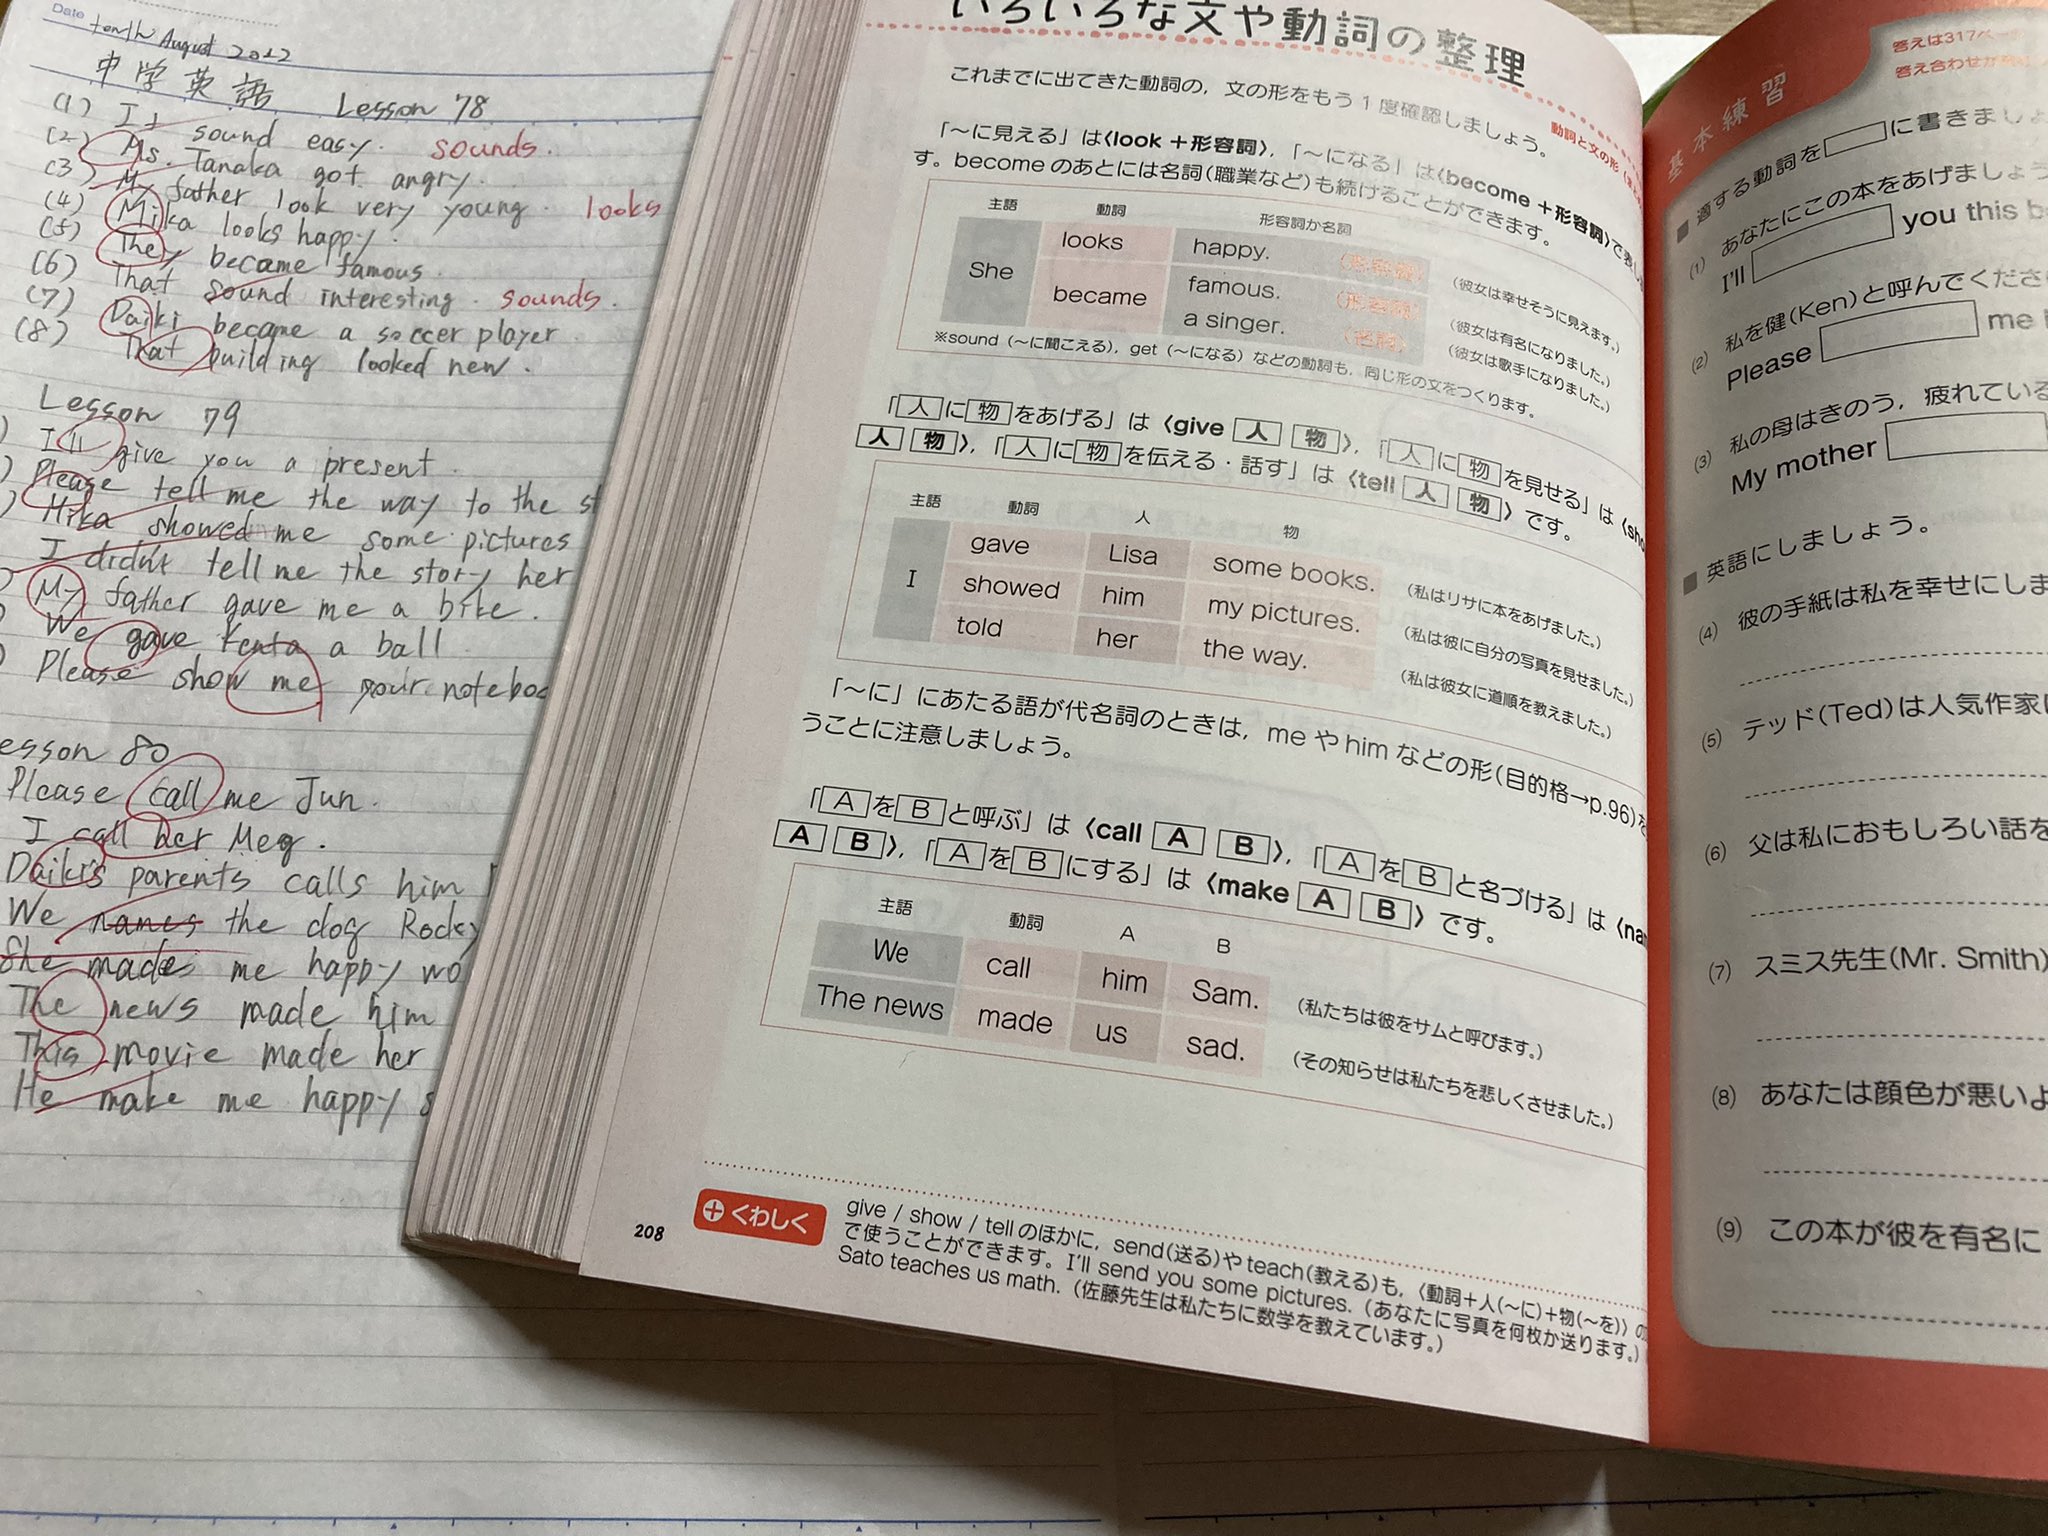 Date
tenth August 2022
中学英語 Lesson 78
(1) It sound easy. sounds.
(2) Ms. Tanaka got angry.
(3) My father look very young. looks
(4) Mika looks happy.
(5) They became famous.
(6) That sound interesting. sounds.
(7) Daiki became a soccer player.
(8) That building looked new.
Lesson 79
I'll give you a present.
Please tell me the way to the st
Mika showed me some pictures
I didn't tell me the story her
My father gave me a bike.
We gave Kenta a ball
Please show me your noteboo
esson 80
Please call me Jun.
I call her Meg.
Daiki's parents calls him
We names the dog Rocky
She made me happy wo
The news made him
This movie made her
He make me happy
いろいろな文や動詞の整理
動詞と文の形
これまでに出てきた動詞の,文の形をもう1度確認しましょう。
「~に見える」は〈look+形容詞〉,「~になる」は〈become+形容詞〉で表し
す。becomeのあとには名詞(職業など)も続けることができます。
主語 動詞 形容詞か名詞
She looks happy. (形容詞) (彼女は幸せそうに見えます。)
became famous. (形容詞) (彼女は有名になりました。)
a singer. (名詞) (彼女は歌手になりました。)
※sound(~に聞こえる),get(~になる)などの動詞も,同じ形の文をつくります。
「人に物をあげる」は〈give 人 物〉,「人に物を見せる」は〈sho
人 物〉,「人に物を伝える・話す」は〈tell 人 物〉です。
主語 動詞 人 物
I gave Lisa some books. (私はリサに本をあげました。)
showed him my pictures. (私は彼に自分の写真を見せました。)
told her the way. (私は彼女に道順を教えました。)
「~に」にあたる語が代名詞のときは,meやhimなどの形(目的格→p.96)を
うことに注意しましょう。
「AをBと呼ぶ」は〈call A B〉,「AをBと名づける」は〈na
A B〉,「AをBにする」は〈make A B〉です。
主語 動詞 A B
We call him Sam. (私たちは彼をサムと呼びます。)
The news made us sad. (その知らせは私たちを悲しくさせました。)
208
くわしく
give / show / tellのほかに,send(送る)やteach(教える)も,〈動詞+人(~に)+物(~を)〉の
で使うことができます。I'll send you some pictures.(あなたに写真を何枚か送ります。)
Sato teaches us math.(佐藤先生は私たちに数学を教えています。)
基本練習
答えは317ペー
答え合わせが
適する動詞を に書きましょ
(1) あなたにこの本をあげましょう
I'll you this b
(2) 私を健(Ken)と呼んでくださ
Please me
(3) 私の母はきのう,疲れている
My mother
英語にしましょう。
(4) 彼の手紙は私を幸せにしま
(5) テッド(Ted)は人気作家に
(6) 父は私におもしろい話を
(7) スミス先生(Mr. Smith)
(8) あなたは顔色が悪いよ
(9) この本が彼を有名に